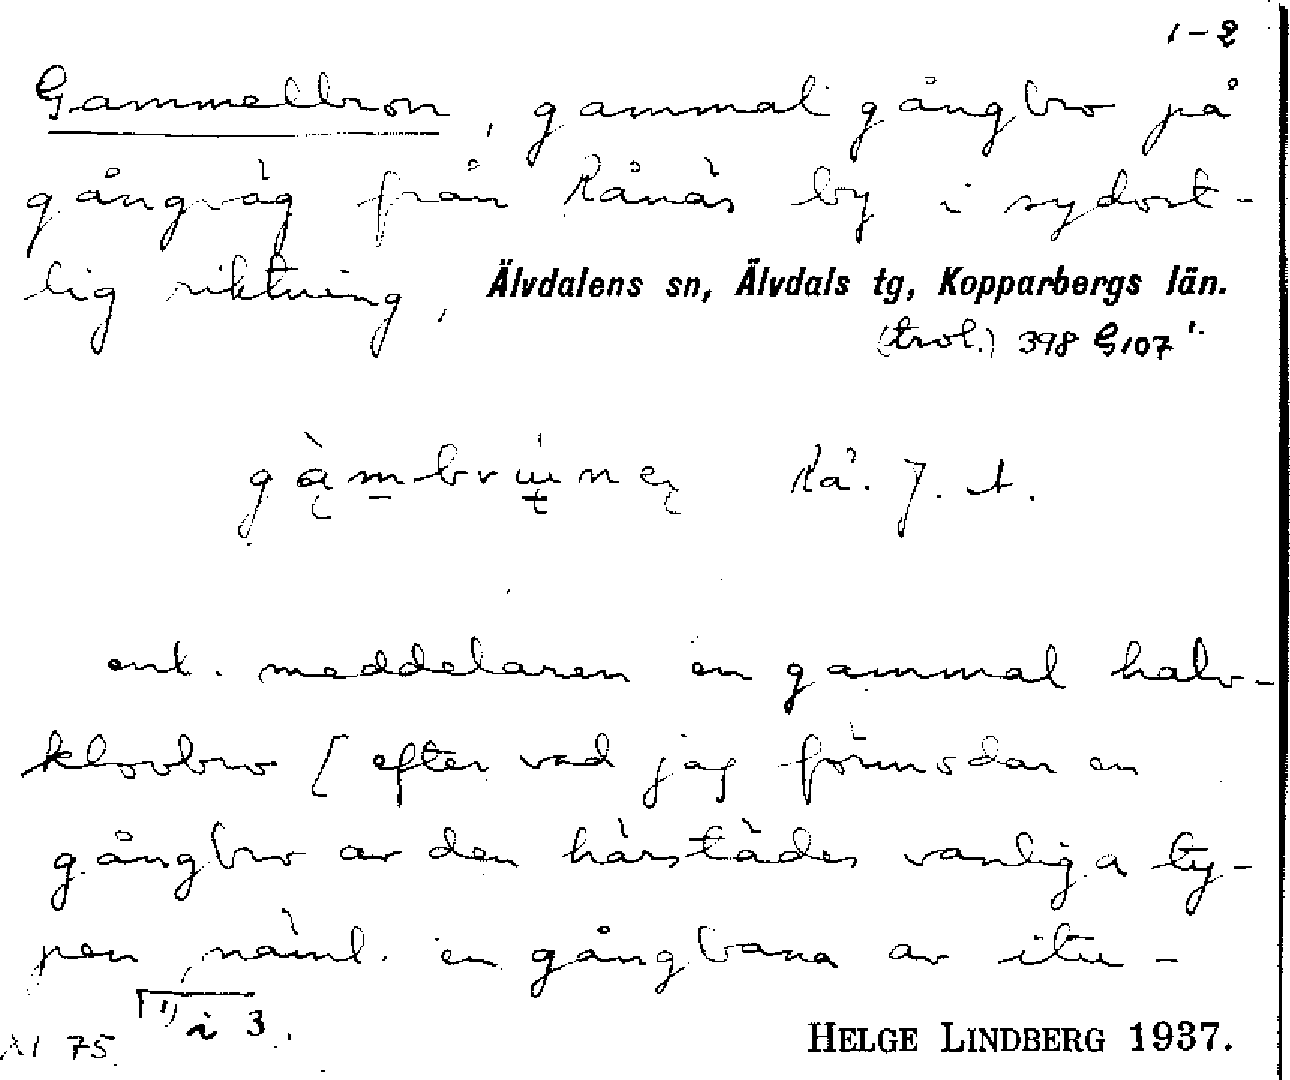 1-2
Gammelbron, gammal gångbro på
gångväg från Rånäs by i sydost-
lig riktning,
Älvdalens sn, Älvdals tg, Kopparbergs län.
(trol.) 398 G107
Rå. J. A.
enl. meddelaren en gammal halv-
klovbro [efter vad jag förmodar en
gångbro av den härstädes vanliga ty-
pen, näml. en gångbana av itu-
i 3.
75
HELGE LINDBERG 1937.